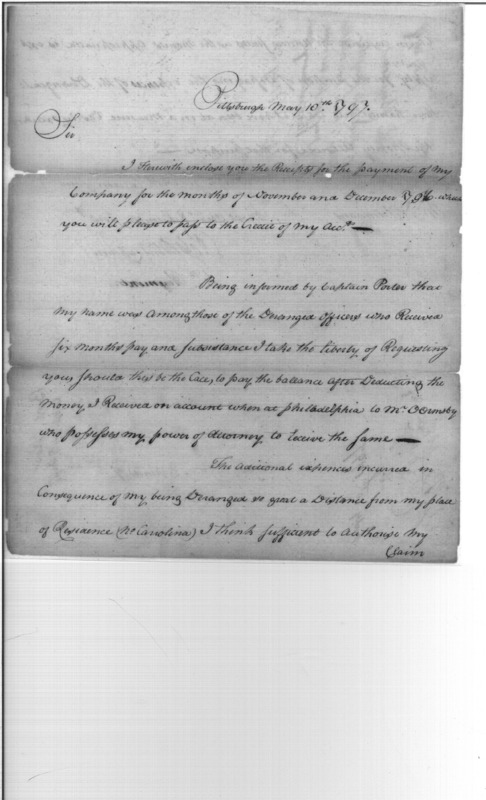 Pittsburgh May 10th 1797.
Sir
I Herewith inclose you the Receipts for the payment of my
Company for the months of November and December 1796 which
you will please to pass to the Credit of my Acct. —
Being informed by Captain Porter that
my name was Among those of the Deranged officers who Received
six months pay and subsistance I take the liberty of Requesting
you, should this be the Case, to pay the ballance After Deducting the
money, I Received on account when at Philadelphia to Mr. Ormsby
who possesses my power of Attorney to receive the same —
The Aditional expences incurred in
Consequence of my being Deranged so great a Distance from my place
of Residence (No. Carolina) I think sufficient to Authorise my
Claim